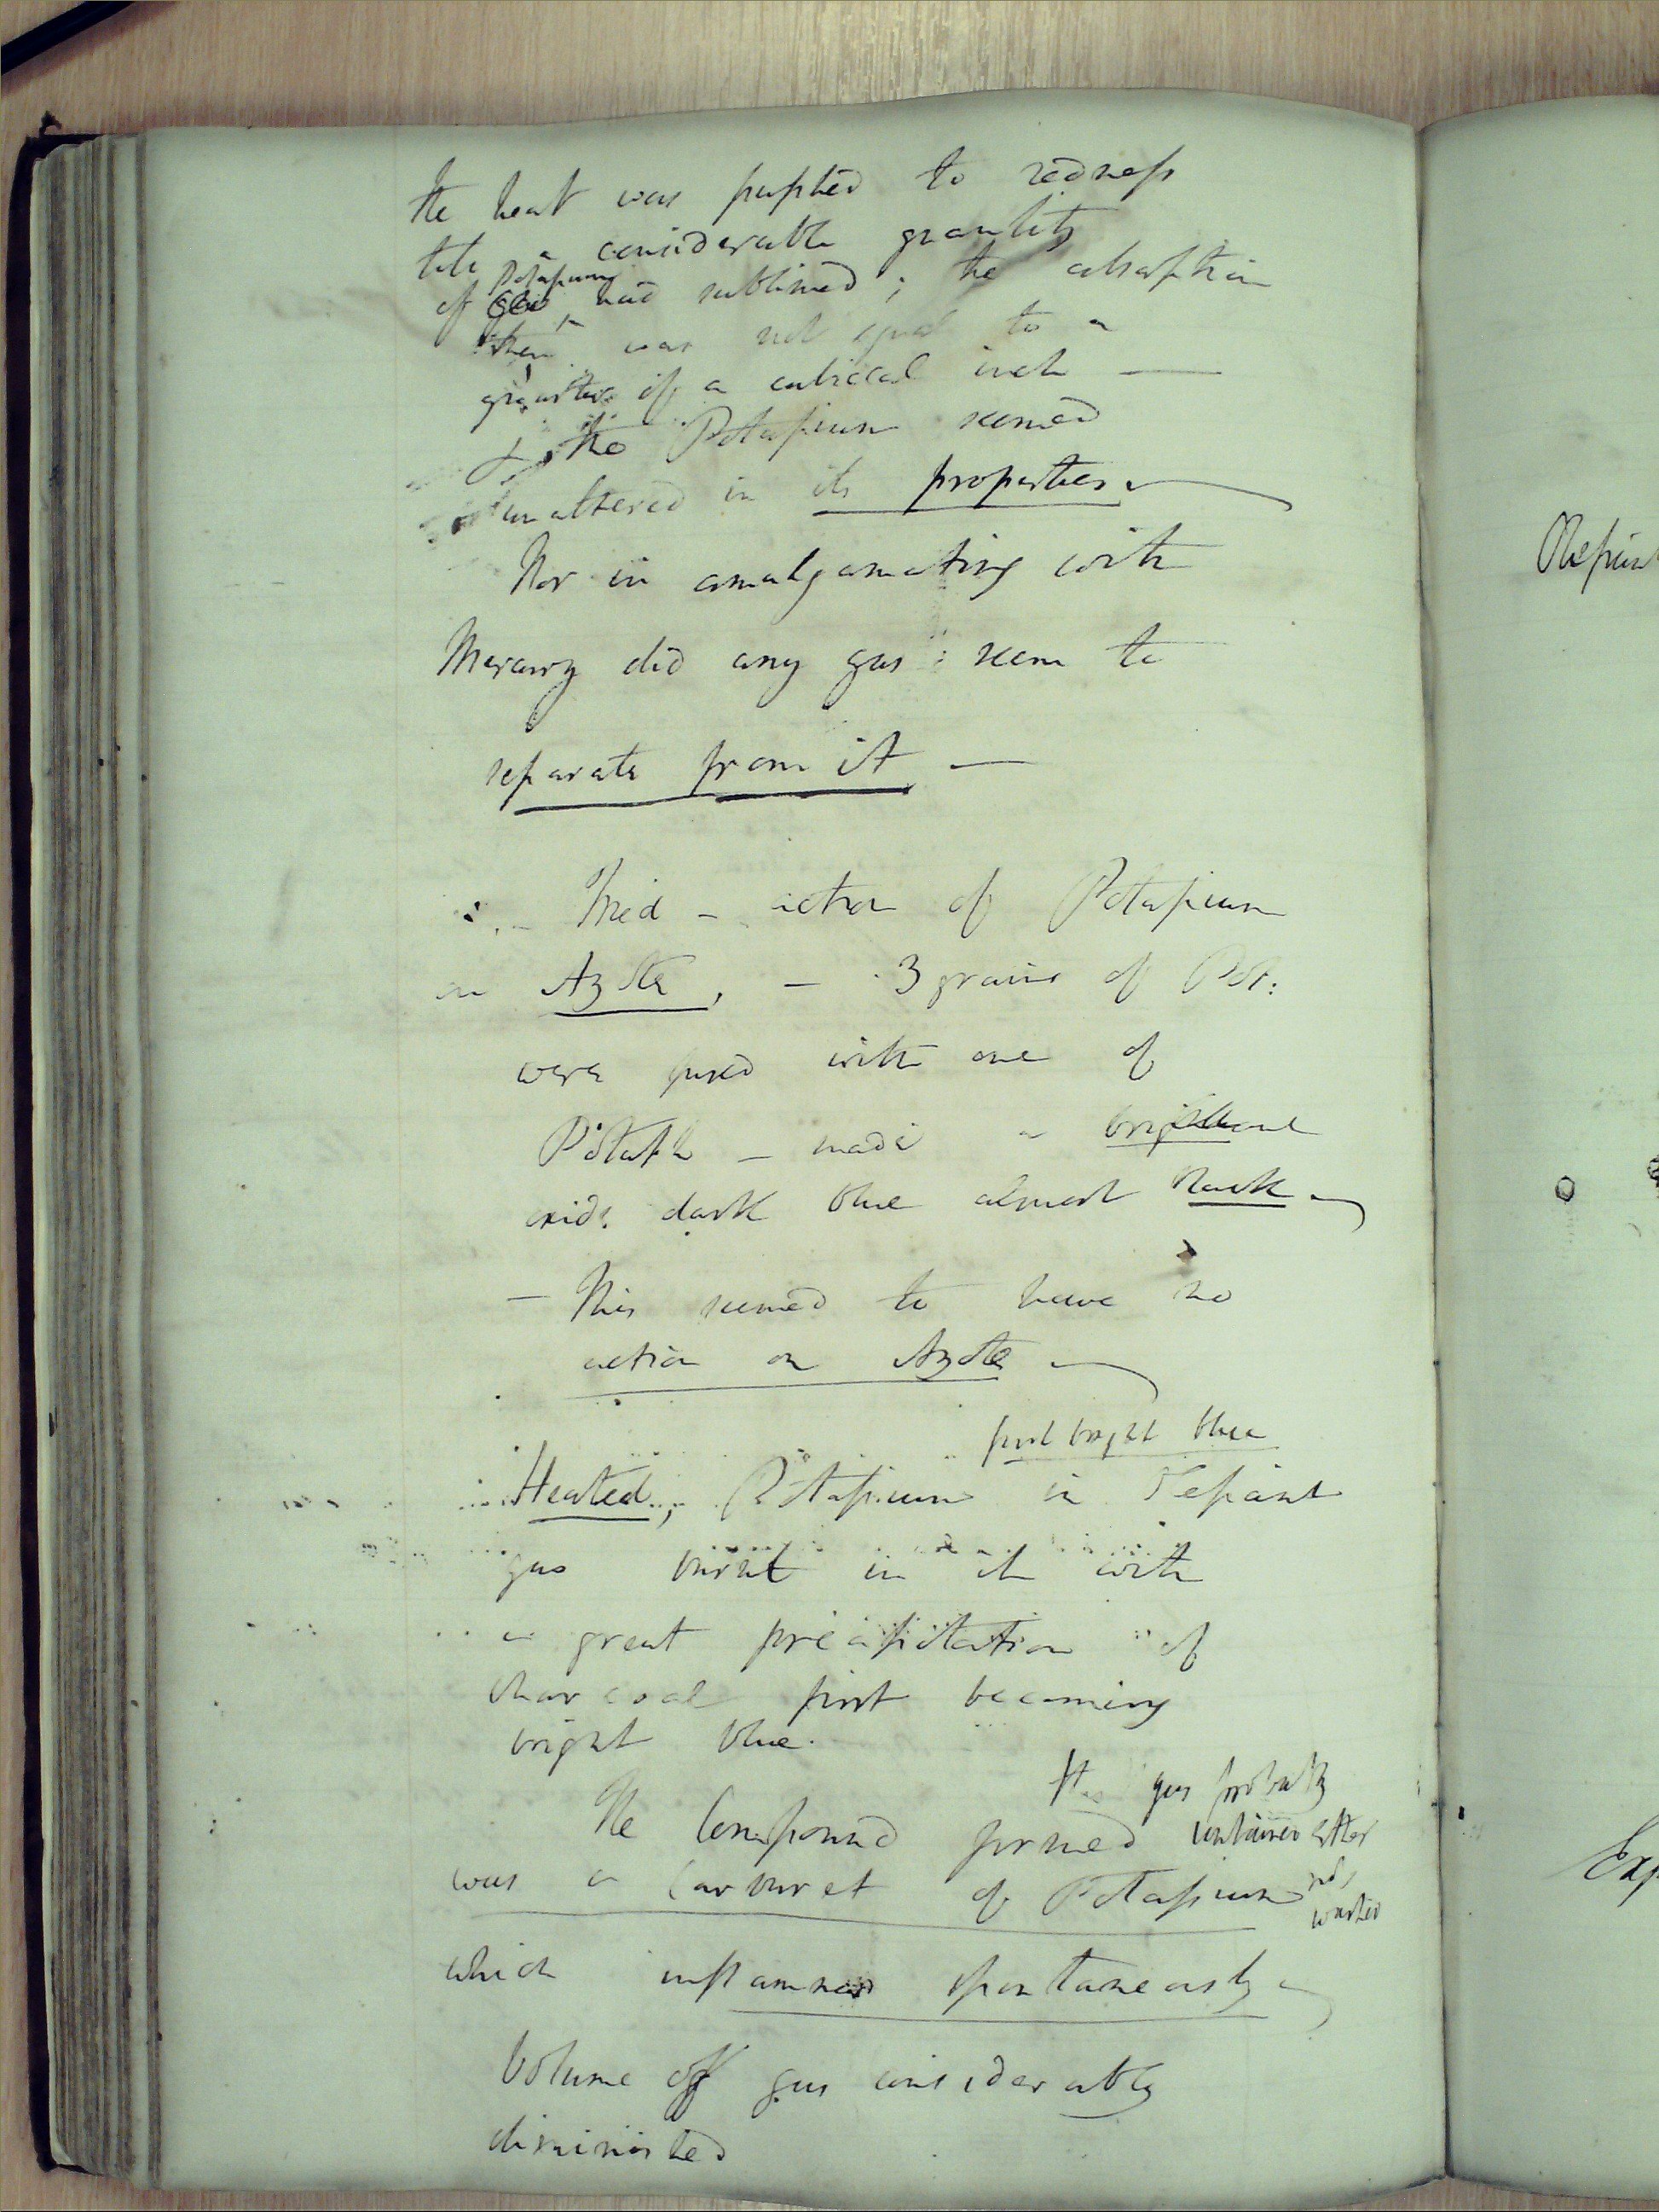 the heat was pushed to redness
till a considerable quantity
Potassium
of had sublimed; the absorption
then was not equal to a
quarter of a cubical inch —
& the Potassium seemed
unaltered in its properties —
Nor in amalgamating with
Mercury did any gas seem to
separate from it —
Tried - action of Potassium
on Azote, — 3 grains of Pot:
were fused with one of
Potash — made a brilliant
oxide dark blue almost black —
— This seemed to have no
action on Azote —
first bright blue
Heated, Potassium in Olefiant
gas burnt in it with
a great precipitation of
charcoal first becoming
bright blue.
The gas probably
The Compound formed contained ether
was a Carburet of Potassium
not
washed
which inflamed spontaneously —
Volume of gas considerably
diminished
Olefiant
Exp